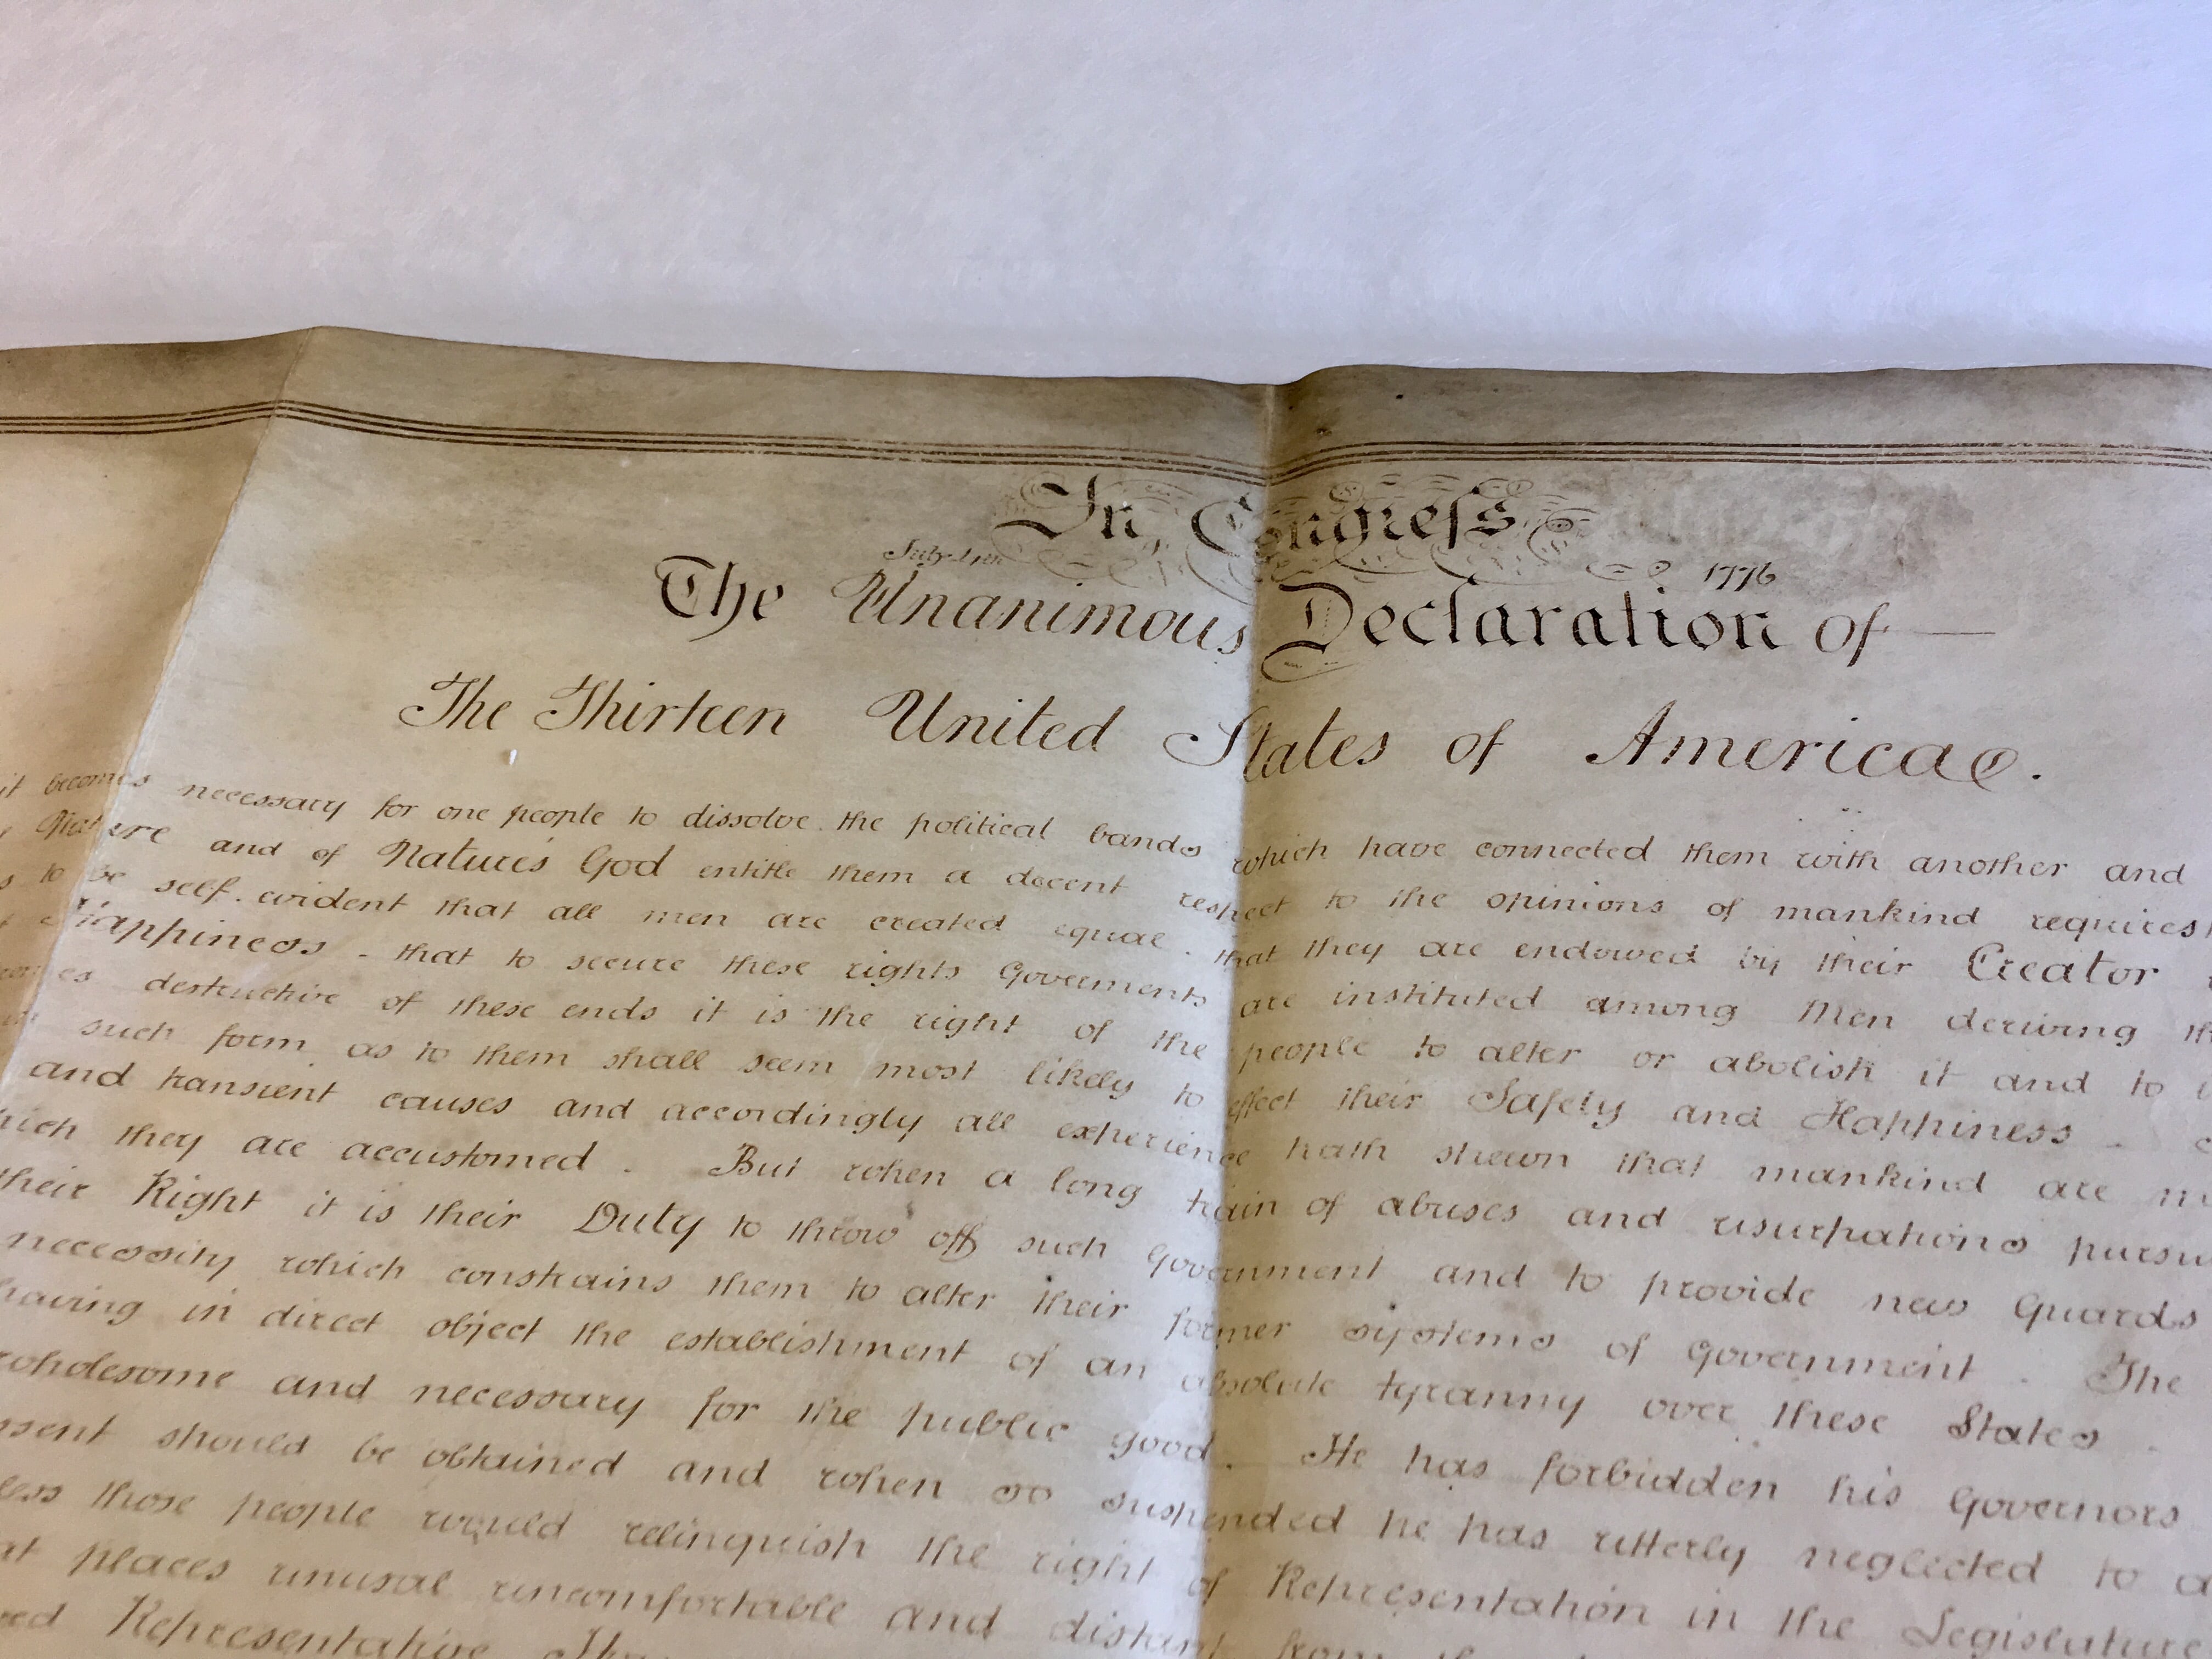 In Congress
July 4th 1776
The Unanimous Declaration of
The Thirteen United States of America.
it becomes necessary for one people to dissolve the political bands which have connected them with another and
Nature and of Nature's God entitle them a decent respect to the opinions of mankind requires
to be self evident that all men are created equal that they are endowed by their Creator
Happiness - that to secure these rights Goverments are instituted among Men deriving
destructive of these ends it is the right of the people to alter or abolish it and to
such form as to them shall seem most likely to effect their Safety and Happiness -
and transient causes and accordingly all experience hath shewn that mankind are
they are accustomed . But when a long train of abuses and usurpations
their Right it is their Duty to throw off such Government and to provide new Guards
necessity which constrains them to alter their former systems of government . The
having in direct object the establishment of an absolute tyranny over these States .
wholesome and necessary for the public good . He has forbidden his Governors
should be obtained and when so suspended he has utterly neglected to
those people would relinquish the right of Representation in the Legislature
places unusual uncomfortable and distant from
Representative